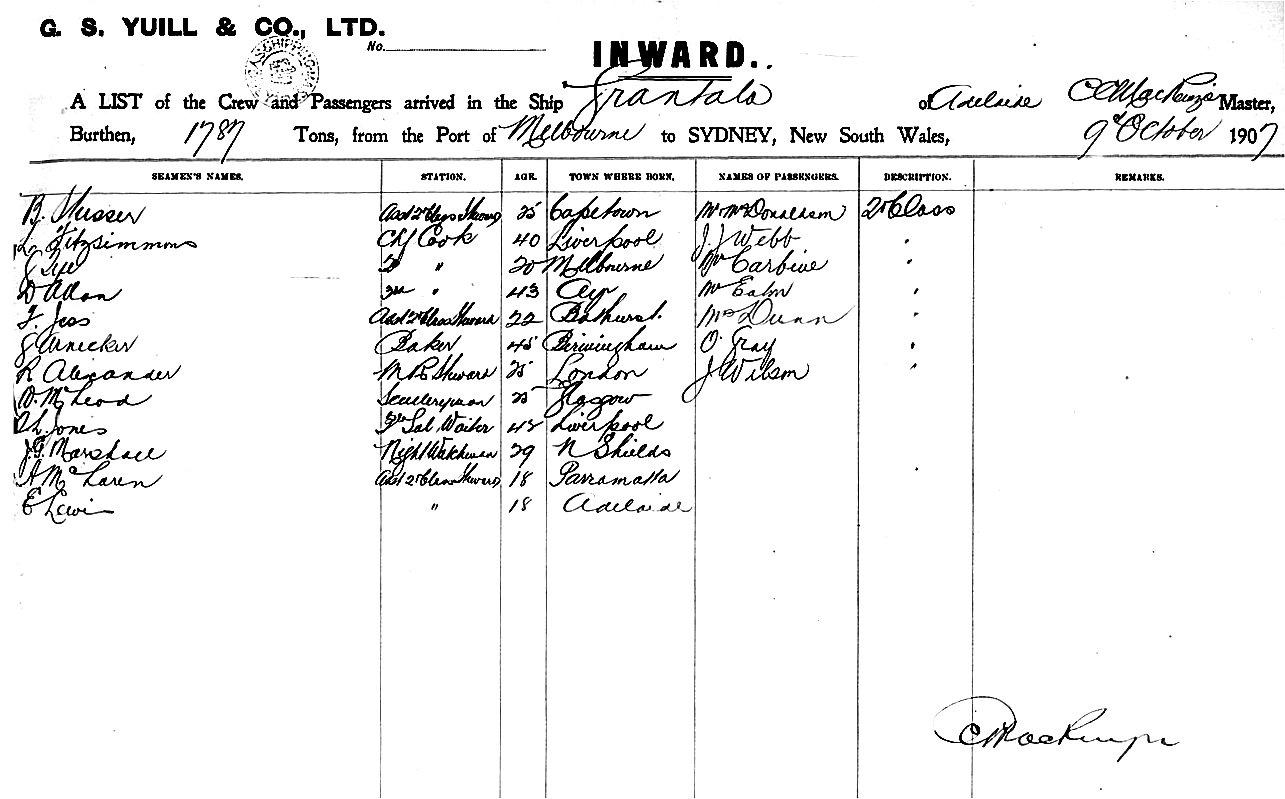 G. S. YUILL & CO., LTD.
No.
INWARD..
A LIST of the Crew and Passengers arrived in the Ship Grantala of Adelaide C MacKenzie Master,
Burthen, 1787 Tons, from the Port of Melbourne to SYDNEY, New South Wales, 9th October 1907
SEAMEN'S NAMES. STATION. AGE. TOWN WHERE BORN. NAMES OF PASSENGERS. DESCRIPTION. REMARKS.
B. Asst 2nd Class Steward 25 Capetown Mr McDonaldson 2nd Class
L. Fitzsimmons Chf Cook 40 Liverpool J. J. Webb "
J Tye 2 " 20 Melbourne Mr Carbine "
D Allan 3rd " 43 Ayr Mr "
F. Jess Asst 2nd Class Steward 22 Bathurst. Dunn "
J Baker 45 Birmingham O. Gray "
R Alexander M R Steward 25 London J Wilson "
D. McLeod Sculleryman 25 Glasgow
L. Jones Sal Waiter 42 Liverpool
J. G. Marshall Night Watchman 29 N Shields
A McLaren Asst 2nd Class Steward 18 Parramatta
E Lewin " 18 Adelaide
C MacKenzie